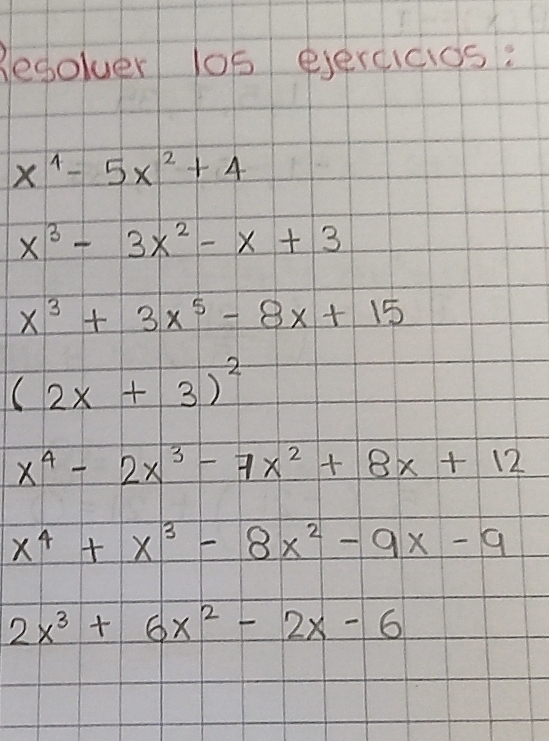 Resolver los ejercicios:
x⁴ - 5x² + 4
x³ - 3x² - x + 3
x³ + 3x⁵ - 8x + 15
(2x + 3)²
x⁴ - 2x³ - 7x² + 8x + 12
x⁴ + x³ - 8x² - 9x - 9
2x³ + 6x² - 2x - 6